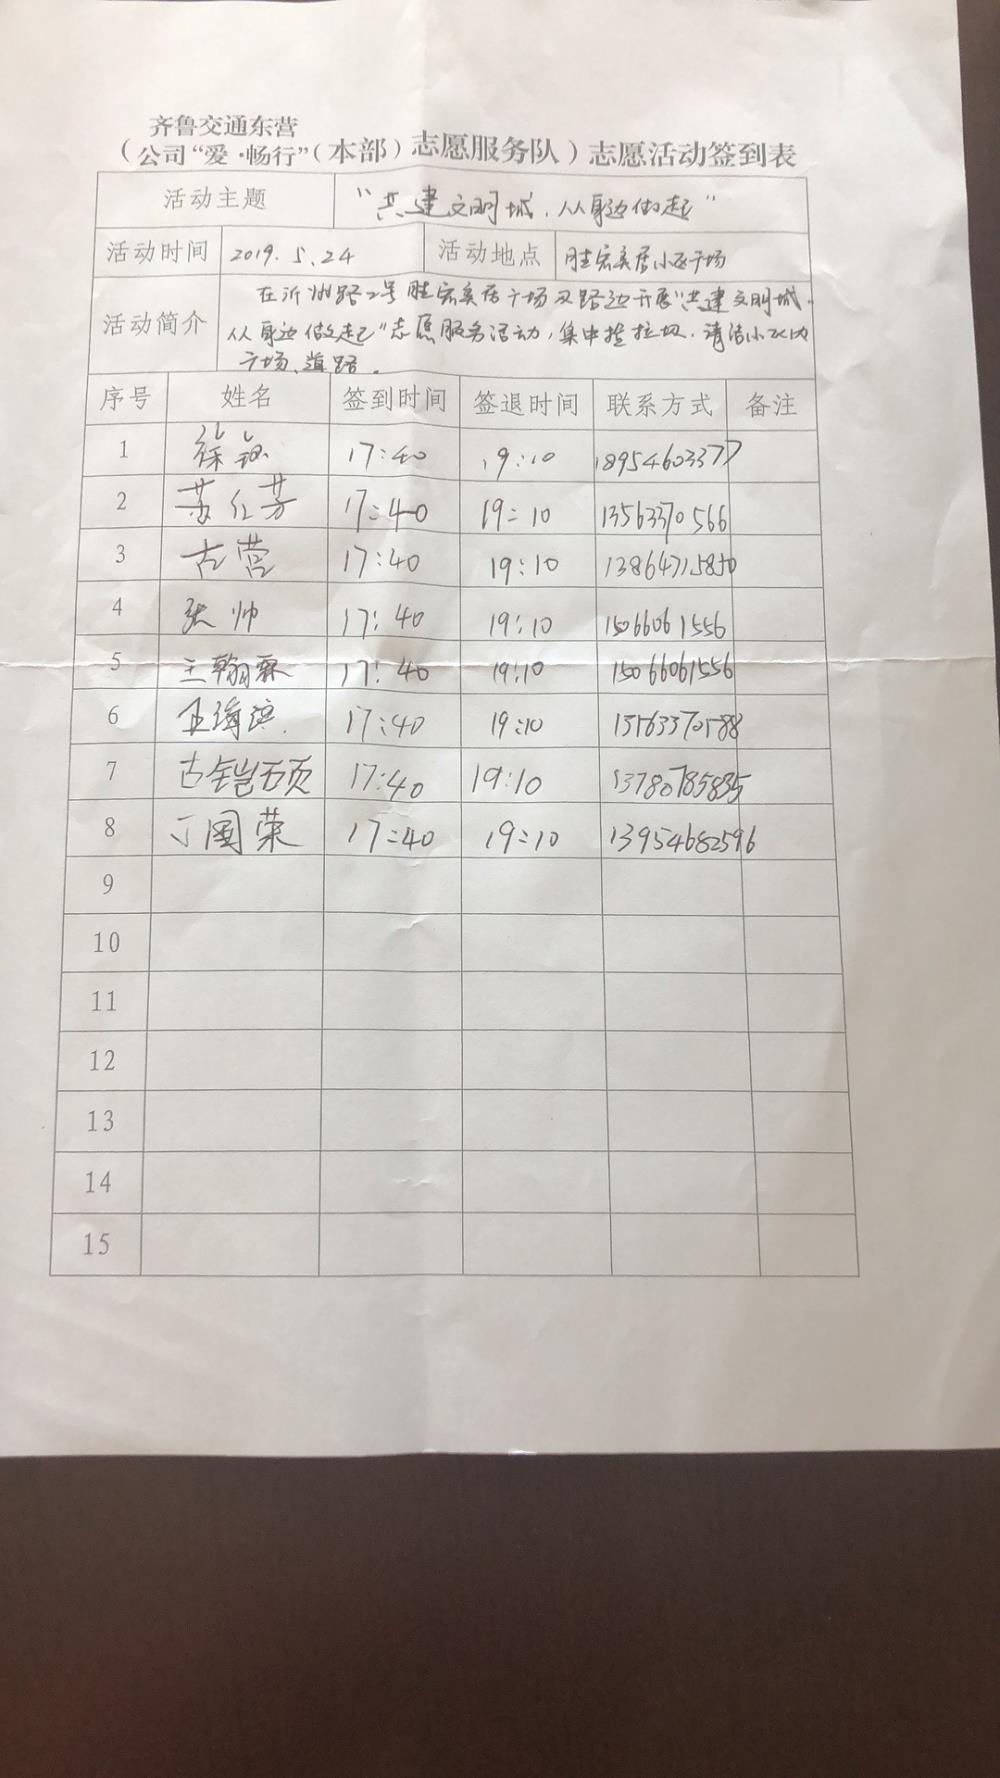 齐鲁交通东营
（公司“爱·畅行”（本部）志愿服务队）志愿活动签到表
活动主题 “共建文明城，从身边做起”
活动时间 2019.5.24 活动地点 胜宏美居小区广场
活动简介 在沂州路2号胜宏美居广场及路边开展“共建文明城，
从身边做起”志愿服务活动，集中捡垃圾，清洁小区内
广场、道路。
序号 姓名 签到时间 签退时间 联系方式 备注
1 徐 17:40 19:10 18954603377
2 苏红芳 17:40 19:10 13563370566
3 古营 17:40 19:10 13864715850
4 张帅 17:40 19:10 15066061556
5 王翰霖 17:40 19:10 15066061556
6 王海滨 17:40 19:10 13563370588
7 古铠硕 17:40 19:10 13780785835
8 丁国荣 17:40 19:10 13954682596
9
10
11
12
13
14
15